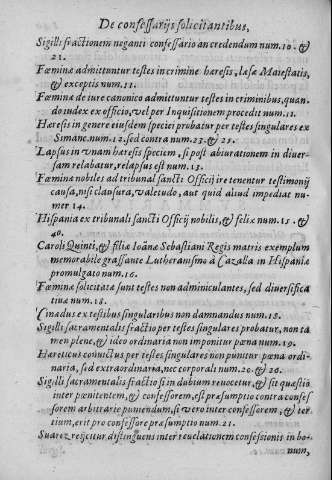 De confessarijs solicitantibus,
Sigilli fractionem neganti confessario an credendum num.10. &
21.
Fœminæ admittuntur testes in crimine hæresis, læsæ Maiestatis,
& exceptis num.11.
Fœminæ de iure canonico admittuntur testes in criminibus, quan
do iudex ex officio, vel per Inquisitionem procedit num.11.
Hæresis in genere eiusdem speciei probatur per testes singulares ex
Simanc.num.12.sed contra num.23. & 25.
Lapsus in vnam hæresis speciem, si post abiurationem in diuer-
sam relabatur, relapsus est num.13.
Fœminæ nobiles ad tribunal sancti Officij ire tenentur testimonij
causa, nisi clausura, valetudo, aut quid aliud impediat nu-
mer 14.
Hispania ex tribunali sancti Officij nobilis, & felix num.15. &
40.
Caroli Quinti, & filiæ Ioānæ Sebastiani Regis matris exemplum
memorabile grassante Lutheranismo à Cazalla in Hispania
promulgato num.16.
Fœminæ solicitatæ sunt testes non adminiculantes, sed diuersifica
tiuæ num.18.
Cinædus ex testibus singularibus non damnandus num.18.
Sigilli sacramentalis fractio per testes singulares probatur, non ta
men plene, & ideo ordinaria non imponitur pœna num.19.
Hæreticus conuictus per testes singulares non punitur pœna ordi-
naria, sed extraordinaria, nec corporali num.20. & 26.
Sigilli sacramentalis fractio si in dubium reuocetur, & sit quæstio
inter pœnitentem, & confessorem, est præsumptio contra confes
sorem arbitrarie puniendum, si vero inter confessorem, & ter
tium, erit pro confessore præsumptio num.21.
Suarez reijcitur, distinguens inter reuelationem confessionis in bo-
num,